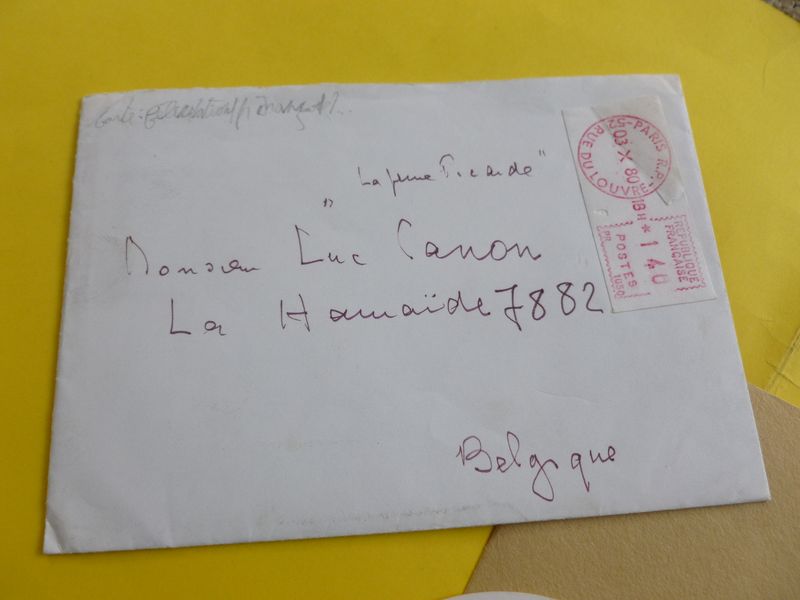 Carte:
" La jeune Picarde "
Monsieur Luc Canon
La Hamaïde 7882
Belgique
52 - PARIS R.P.
RUE DU LOUVRE
03 X 80
18 H
* 140
REPUBLIQUE
FRANÇAISE
POSTES
PR. 1050